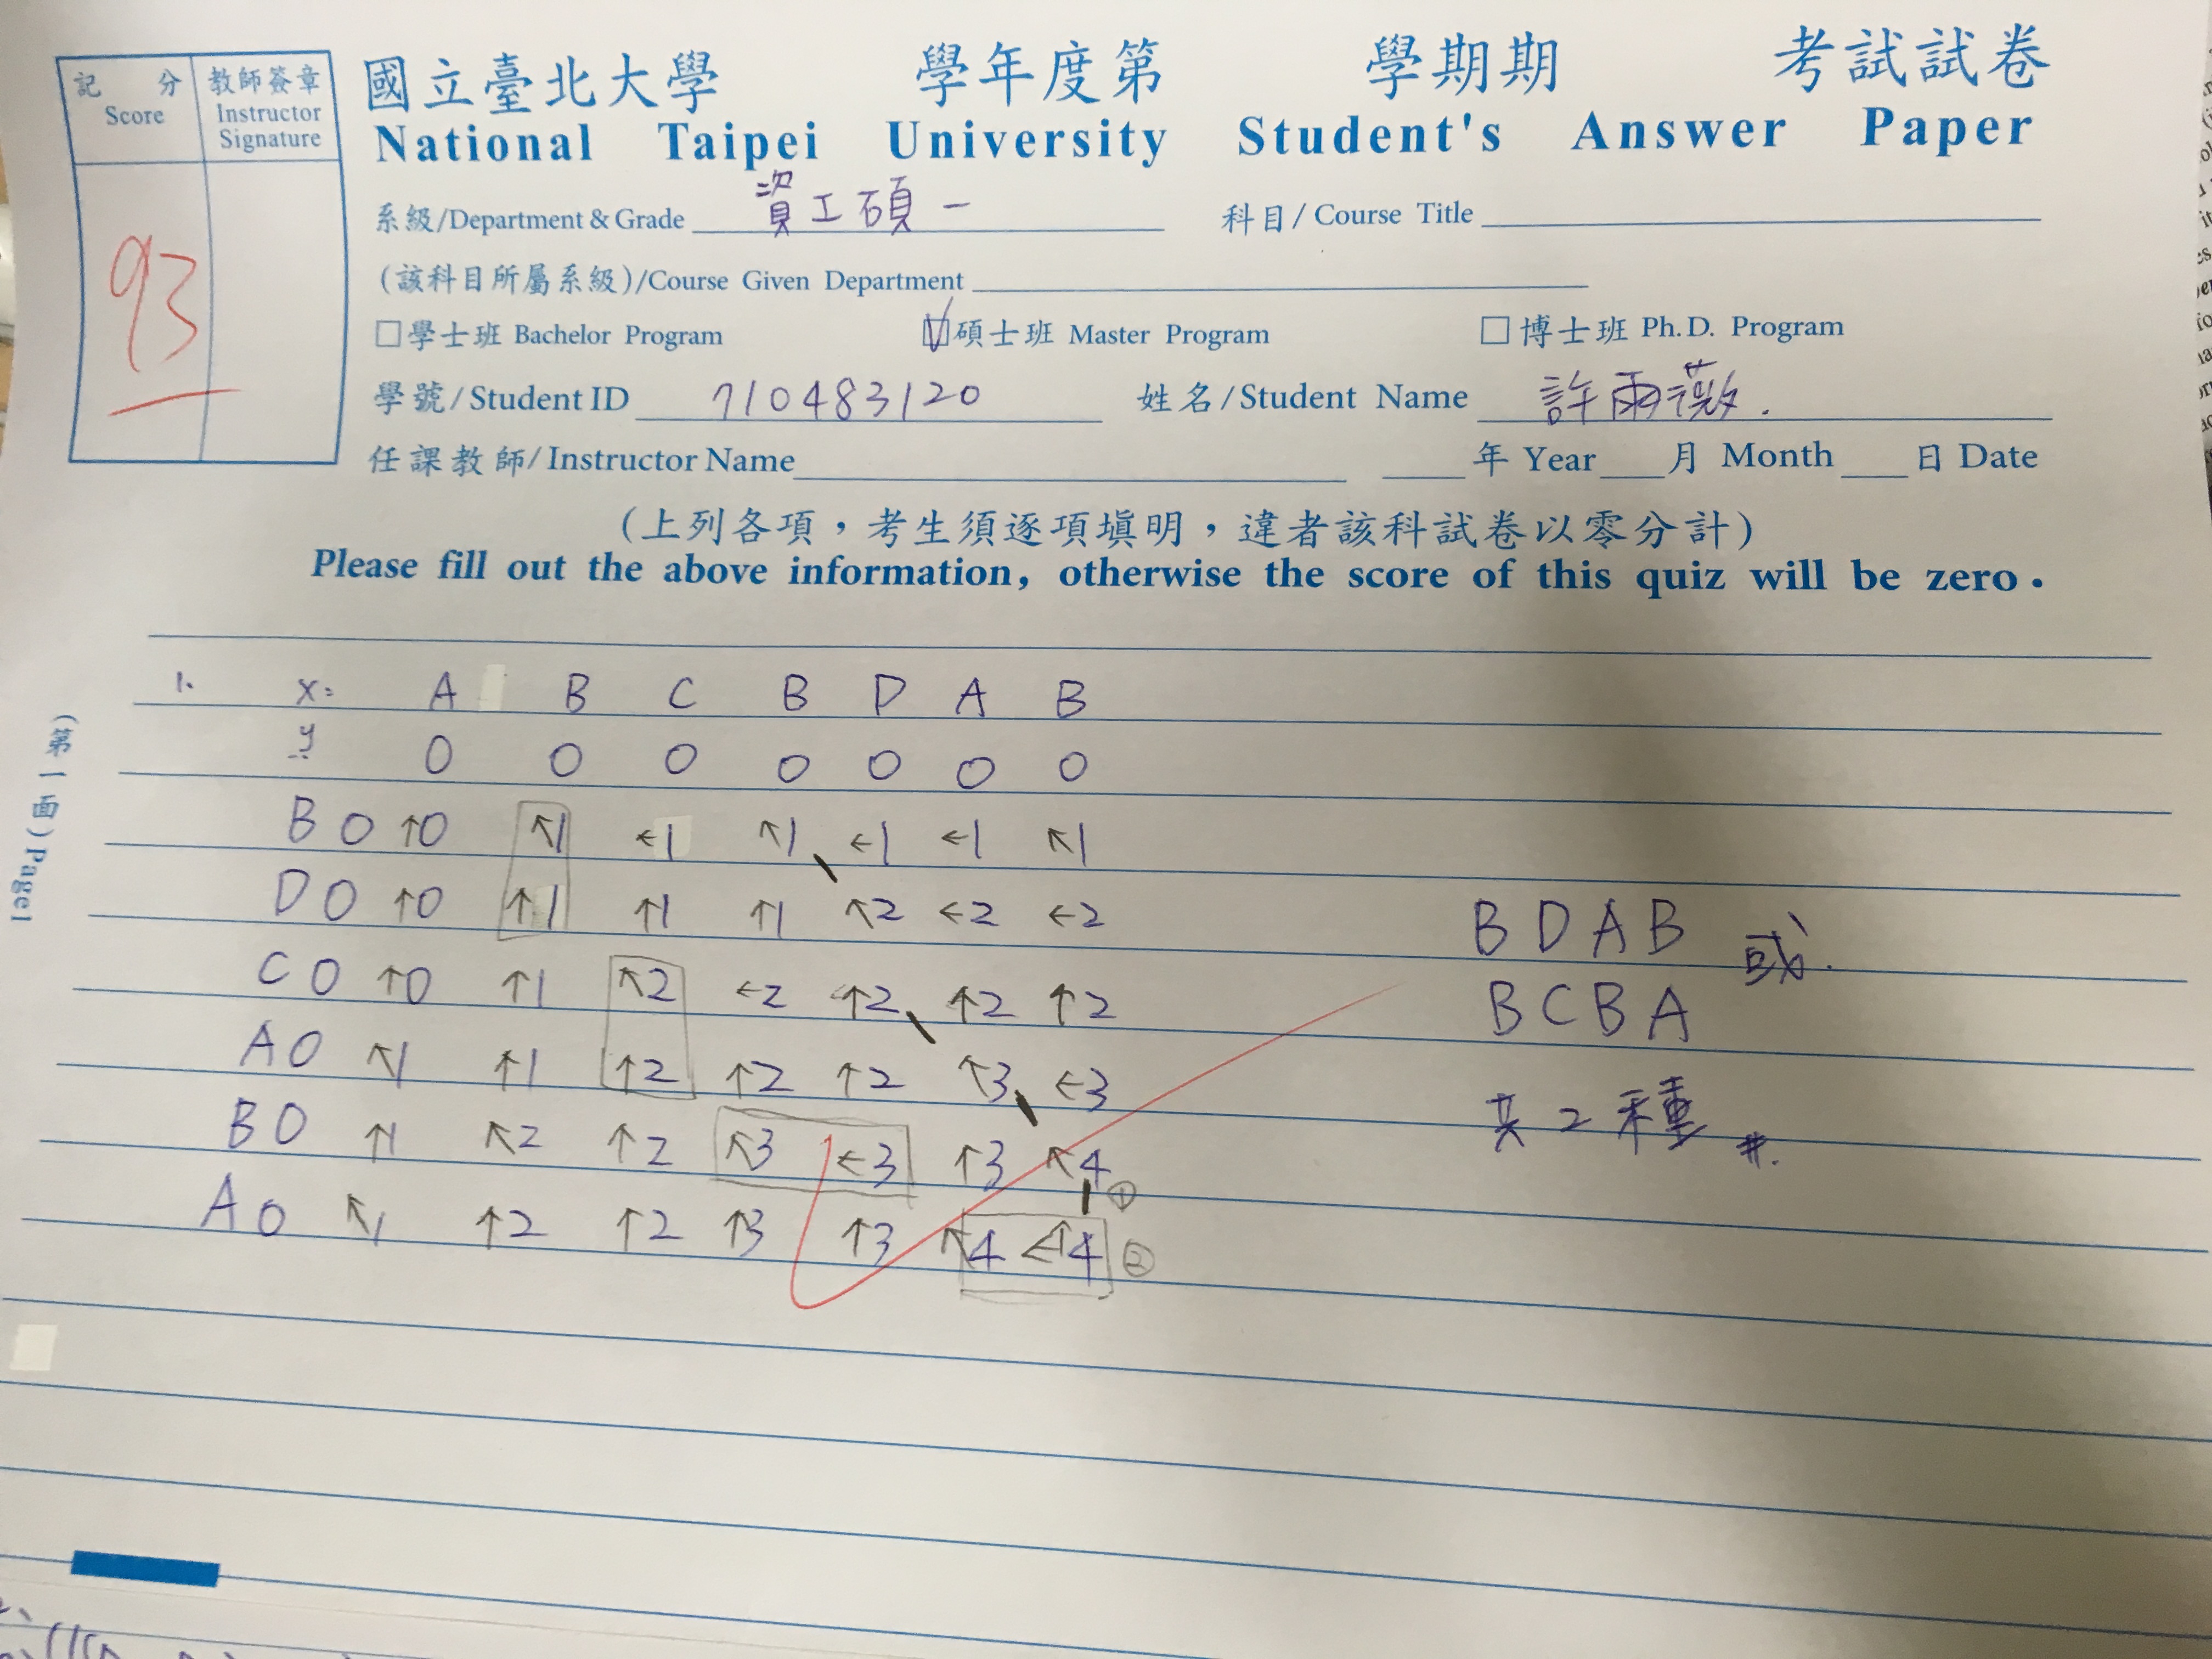 記 分 教師簽章
Score Instructor Signature
93
國立臺北大學 學年度第 學期期 考試試卷
National Taipei University Student's Answer Paper
系級/Department & Grade 資工碩一 科目/ Course Title
(該科目所屬系級)/Course Given Department
□學士班 Bachelor Program ☑碩士班 Master Program □博士班 Ph.D. Program
學號/Student ID 710483120 姓名/Student Name 許雨薇.
任課教師/Instructor Name 年 Year 月 Month 日 Date
(上列各項，考生須逐項填明，違者該科試卷以零分計)
Please fill out the above information, otherwise the score of this quiz will be zero.
(第1面)Page1
1. X: A B C B D A B
y 0 0 0 0 0 0 0
B 0 ↑0 ↖1 ←1 ↖1 ←1 ←1 ↖1
D 0 ↑0 ↑1 ↑1 ↑1 ↖2 ←2 ←2
C 0 ↑0 ↑1 ↖2 ←2 ↑2 ↑2 ↑2
A 0 ↖1 ↑1 ↑2 ↑2 ↑2 ↖3 ←3
B 0 ↑1 ↖2 ↑2 ↖3 ←3 ↑3 ↖4 ①
A 0 ↖1 ↑2 ↑2 ↑3 ↑3 ↖4 ←↑4 ②
BDAB 或.
BCBA
共2種 #.